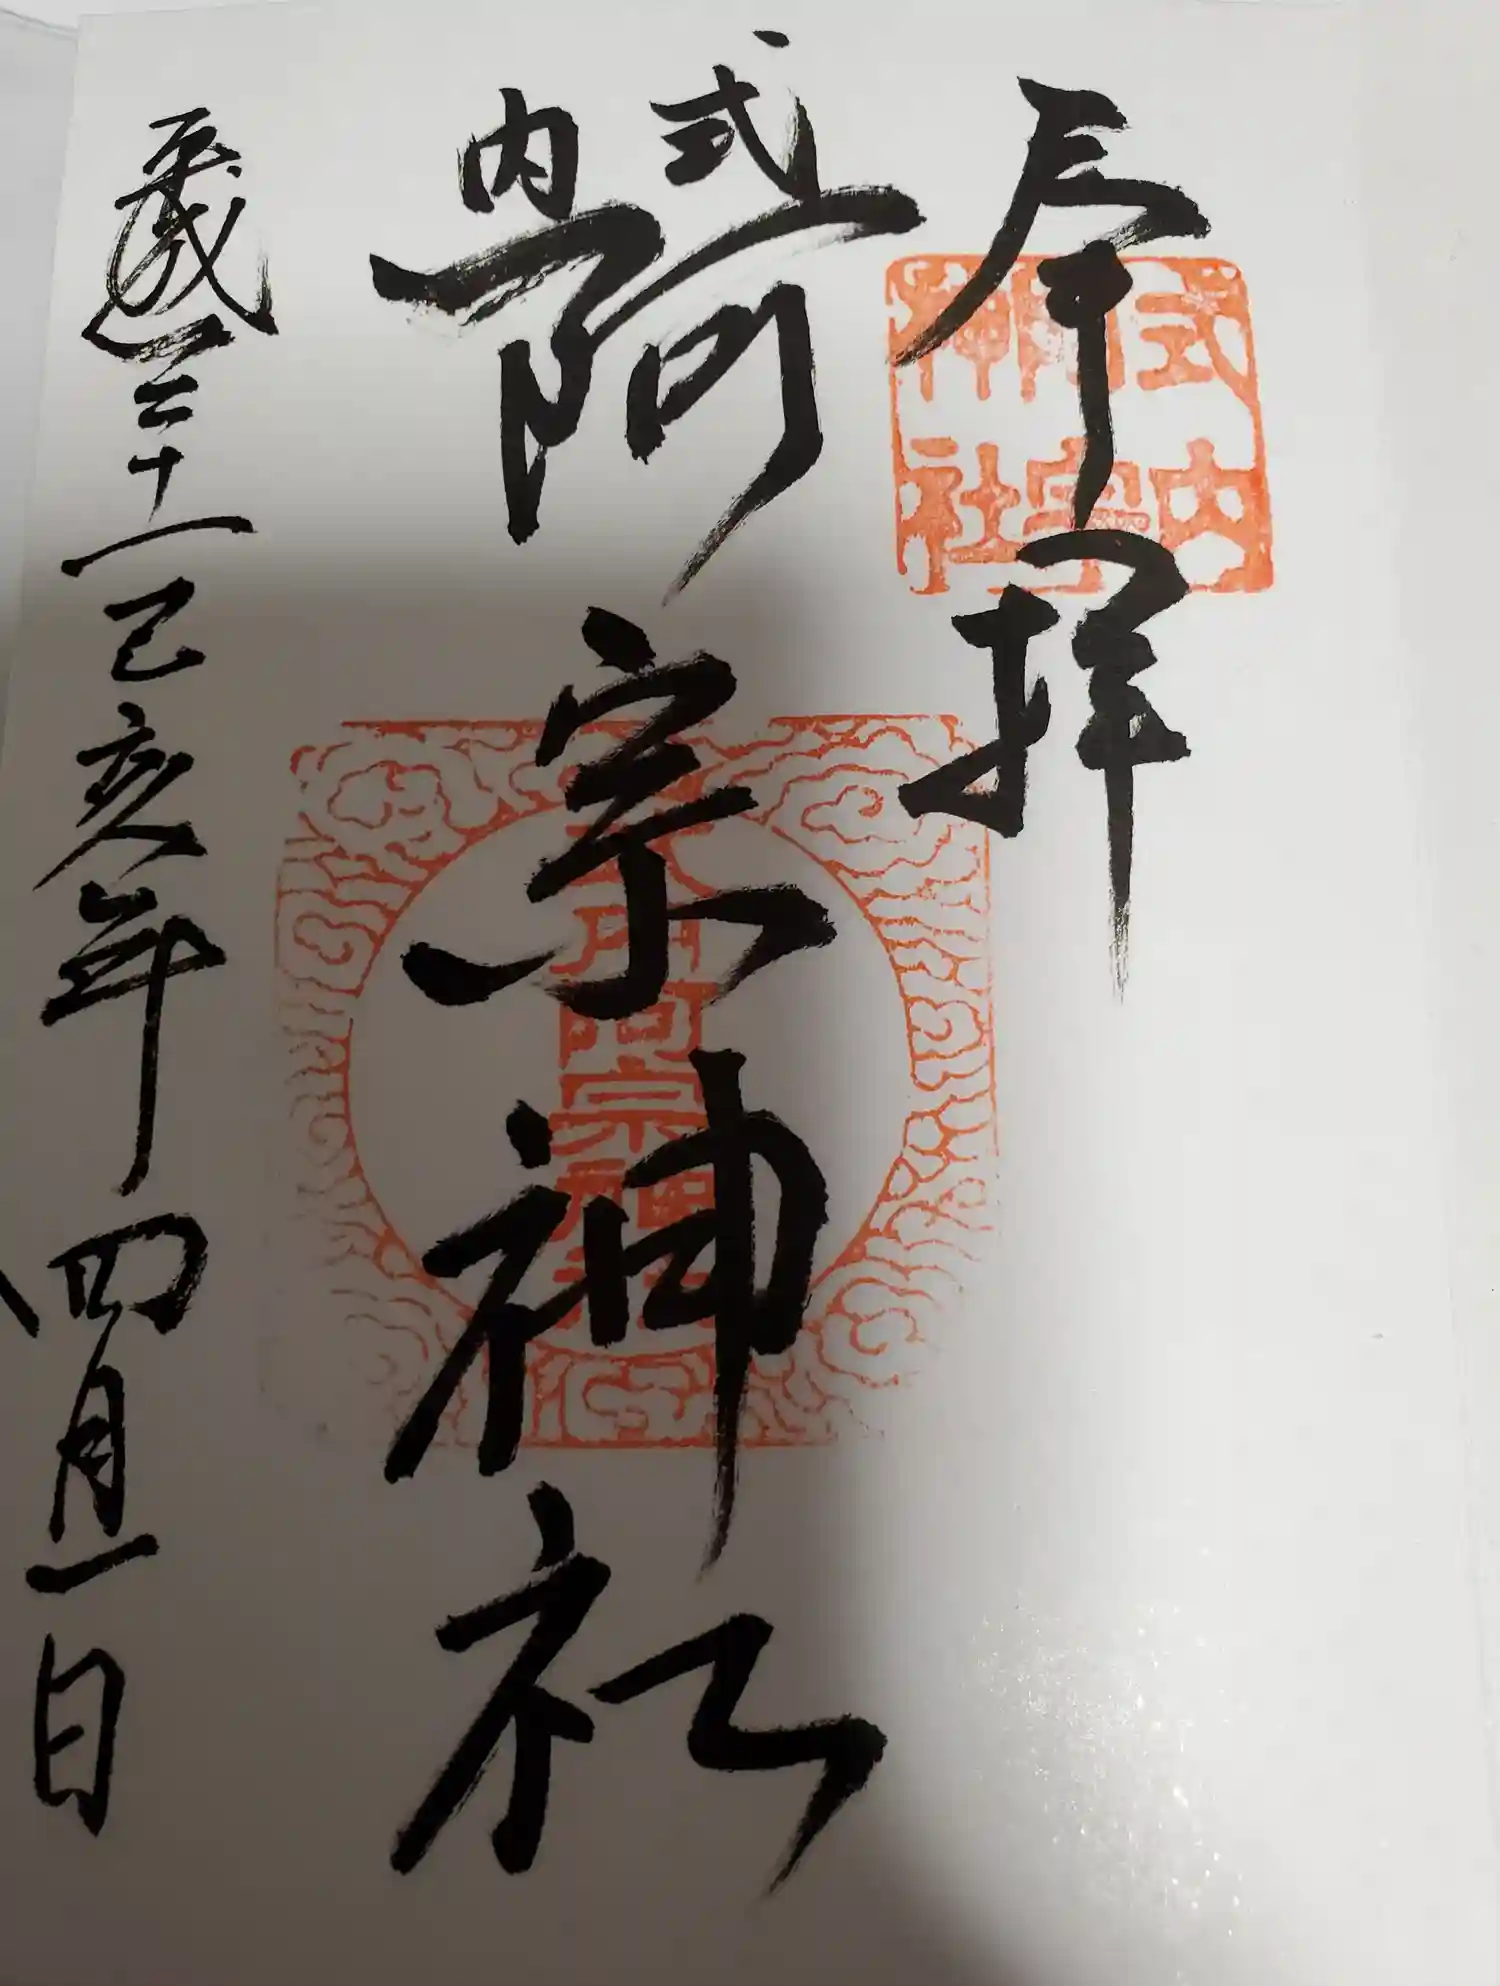 奉拝
式内
阿宗神社
平成三十一己亥年四月一日
式内
阿宗
神社
式内阿宗神社